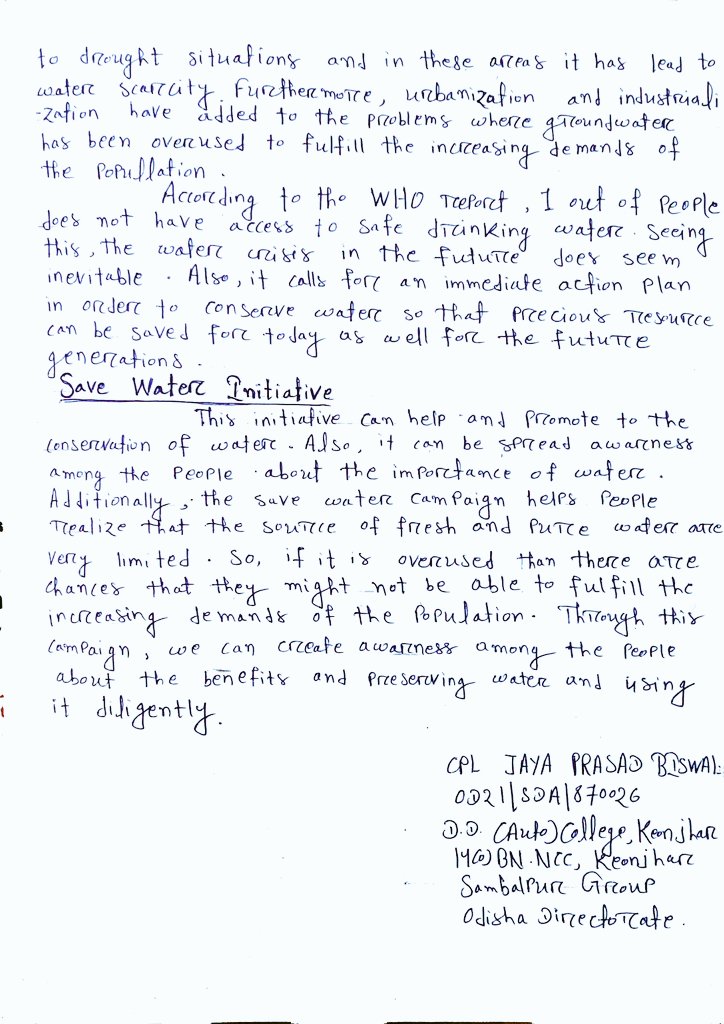 to drought situations and in these areas it has lead to
water scarcity. Furthermore, urbanization and industriali
-zation have added to the problems where groundwater
has been overused to fulfill the increasing demands of
the popullation.
According to the WHO report, 1 out of people
does not have access to safe drinking water. Seeing
this, the water crisis in the future does seem
inevitable. Also, it calls for an immediate action plan
in order to conserve water so that precious resource
can be saved for today as well for the future
generations.
Save Water Initiative
This initiative can help and promote to the
conservation of water. Also, it can be spread awarness
among the people about the importance of water.
Additionally, the save water campaign helps people
realize that the source of fresh and pure water are
very limited. So, if it is overused than there are
chances that they might not be able to fulfill the
increasing demands of the population. Through this
campaign, we can create awarness among the people
about the benefits and preserving water and using
it diligently.
CPL JAYA PRASAD BISWAL
OD21/SDA/870026
D.D. (Auto) College, Keonjhar
14(O) BN. NCC, Keonjhar
Sambalpur Group
Odisha Directorate.